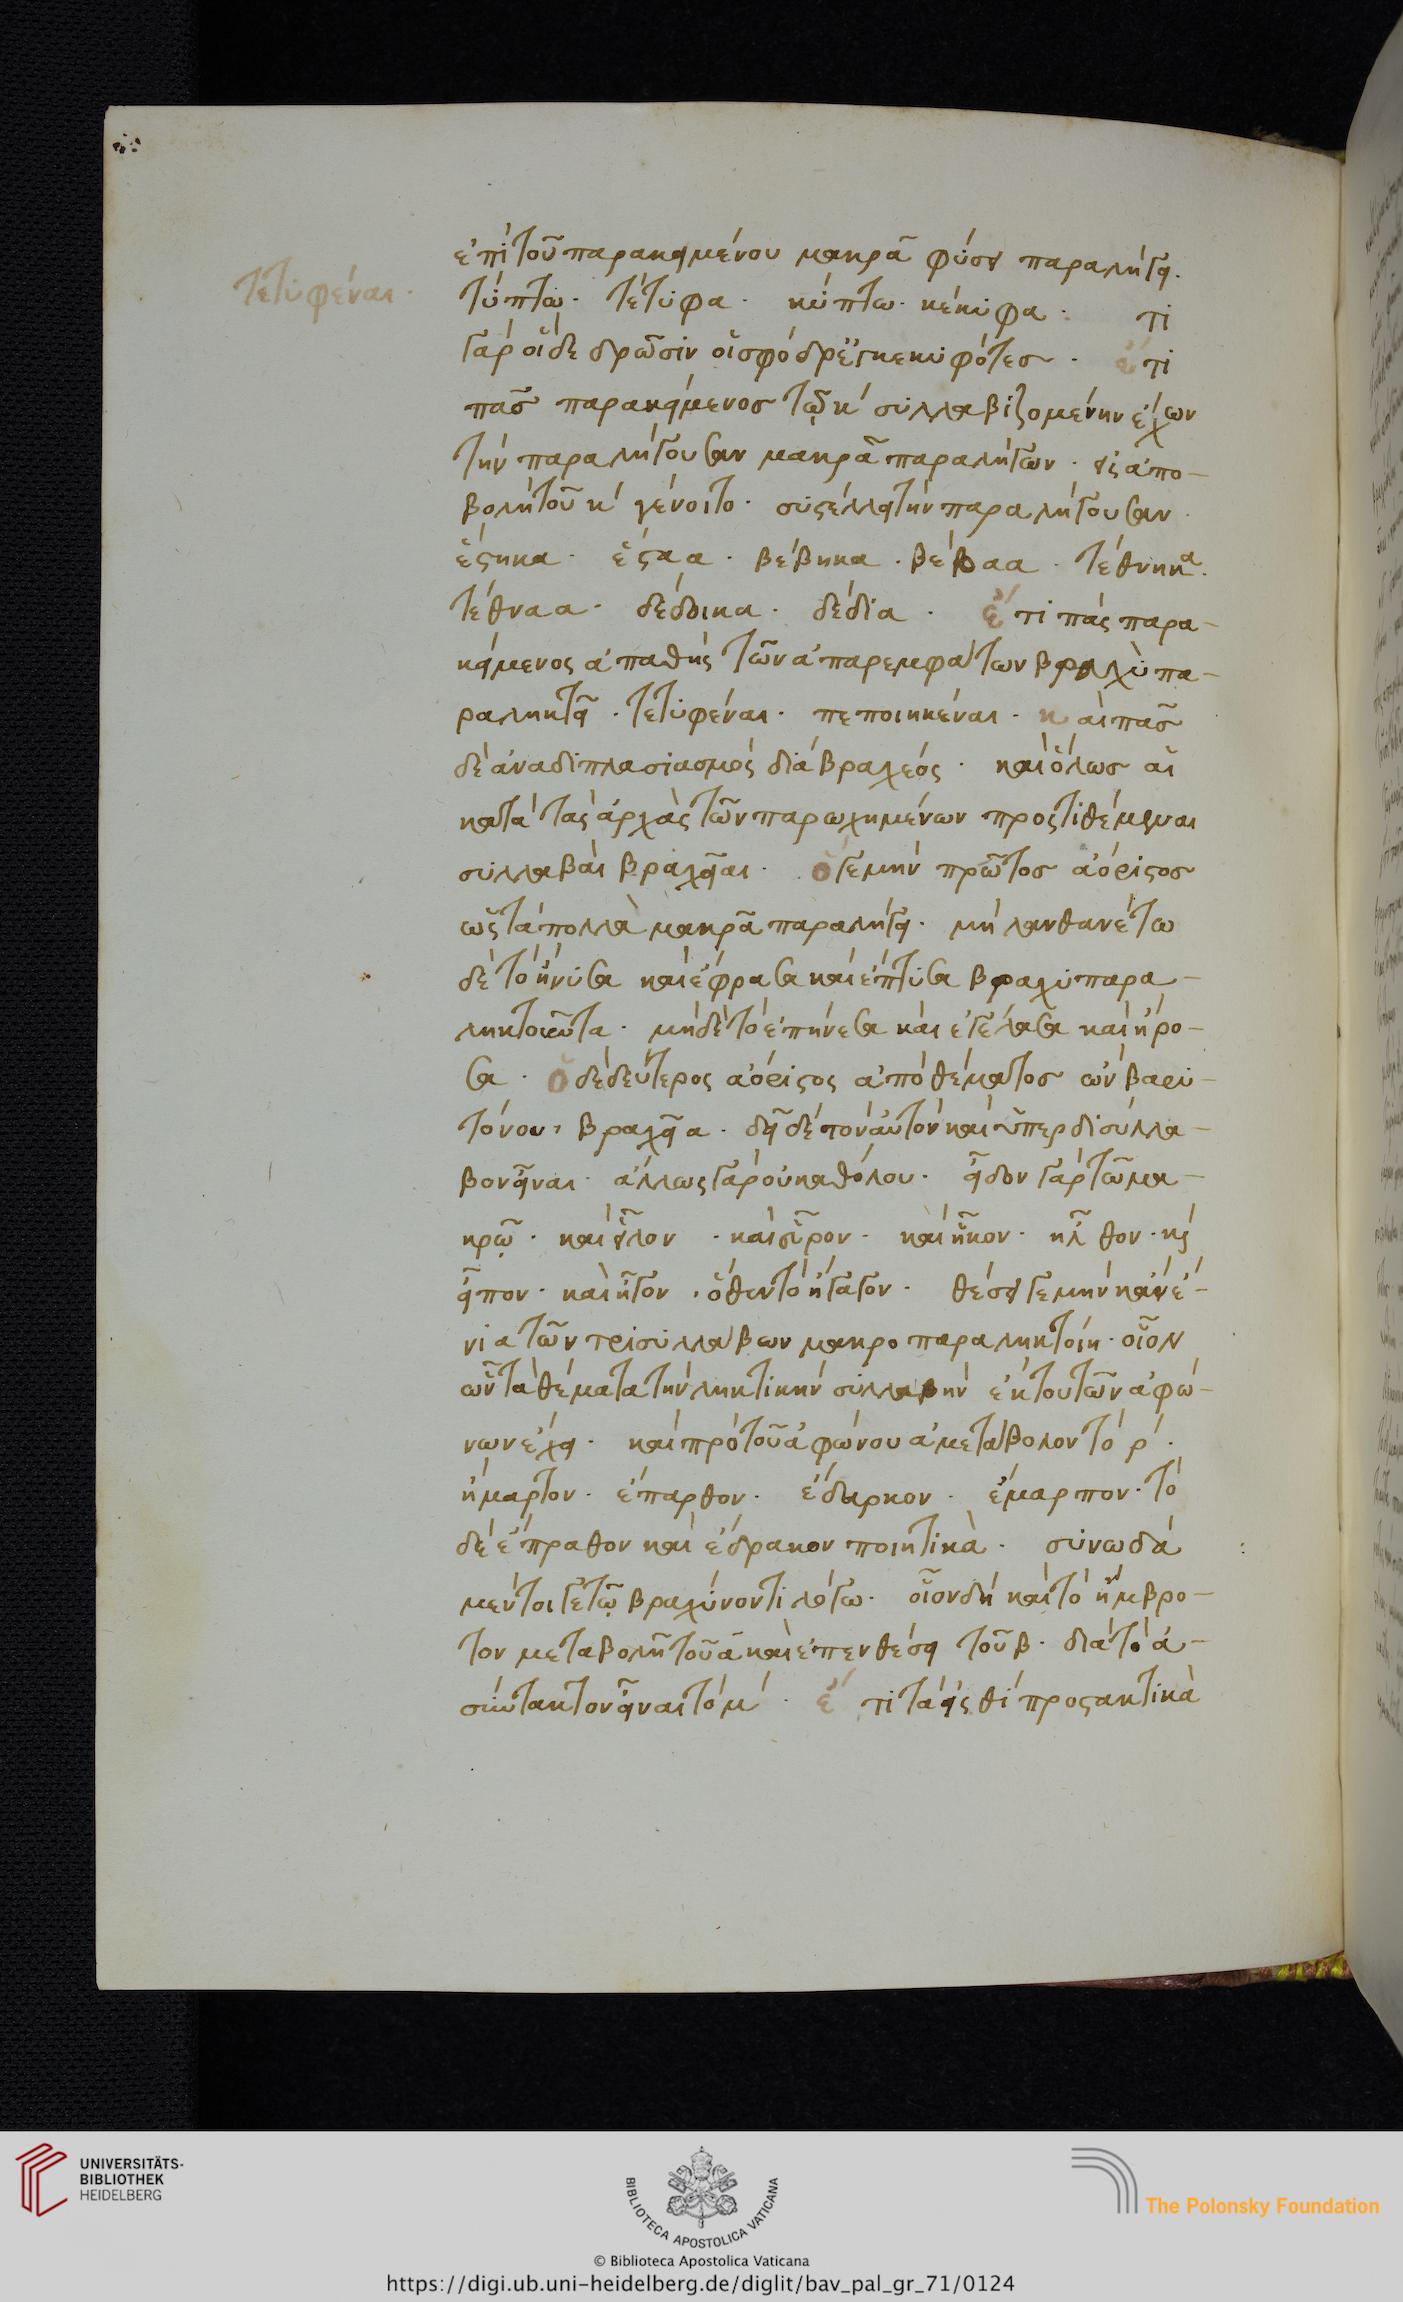 τετυφέναι.
ἐπὶ τοῦ παρακειμένου μακρᾷ φύσει παραλήγει.
τύπτω. τέτυφα. κύπτω. κέκυφα. τί
γὰρ οἵδε δρῶσιν οἱ σφόδρ' ἐγκεκυφότες. ἔτι
πᾶς παρακείμενος τῷ κ συλλαβιζομένην ἔχων
τὴν παραλήγουσαν μακρᾷ παραλήγων. εἰ ἀπο-
βολὴ τοῦ κ γένοιτο. συστέλλει τὴν παραλήγουσαν.
ἕστηκα. ἕσταα. βέβηκα. βέβαα. τέθνηκα.
τέθναα. δέδοικα. δέδια. ἔτι πᾶς παρα-
κείμενος ἀπαθὴς τῶν ἀπαρεμφάτων βραχὺ πα-
ραληκτεῖ. τετυφέναι. πεποιηκέναι. καὶ πᾶς
δὲ ἀναδιπλασιασμὸς διὰ βραχέος. καὶ ὅλως αἱ
κατὰ τὰς ἀρχὰς τῶν παρωχημένων προστιθέμεναι
συλλαβαὶ βραχεῖαι. ὅ γε μὴν πρῶτος ἀόριστος
ὡς τὰ πολλὰ μακρᾷ παραλήγει. μὴ λανθανέτω
δὲ τὸ ἤνυσα καὶ ἔφρασα καὶ ἔπτυσα βραχυπαρα-
ληκτοῦντα. μηδὲ τὸ ἐπήνεσα καὶ ἐγέλασα καὶ ἤρο-
σα. ὁ δὲ δεύτερος ἀόριστος ἀπὸ θέματος ὢν βαρυ-
τόνου, βραχεῖα. δεῖ δὲ τὸν αὐτὸν καὶ ὑπερδισύλλα-
βον εἶναι. ἄλλως γὰρ οὐ καθόλου. εἶδον γὰρ τῷ μα-
κρῷ. καὶ εἷλον. καὶ εὗρον. καὶ ἧκον. ἦλθον. καὶ
εἶπον. καὶ ἦγον. ὅθεν τὸ ἤγαγον. θέσει γε μὴν κἂν ἔ-
νια τῶν τρισυλλάβων μακροπαραληκτοίη. οἷον
ὧν τὰ θέματα τὴν ληκτικὴν συλλαβὴν ἐκ του τῶν ἀφώ-
νων ἔχει. καὶ πρὸ τοῦ ἀφώνου ἀμετάβολον τὸ ρ.
ἥμαρτον. ἔπαρθον. ἔδαρκον. ἔμαρπον. τὸ
δὲ ἔπραθον καὶ ἔδρακον ποιητικὰ. συνωδὰ
μέντοι γε τῷ βραχύνοντι λόγω. οἷον δὴ καὶ τὸ ἤμβρο-
τον μεταβολῇ τοῦ α καὶ ἐπενθέσει τοῦ β. διὰ τὸ ἀ-
σύντακτον εἶναι τὸ μ. ἔτι τὰ εἰς θι προστακτικὰ
UNIVERSITÄTS-
BIBLIOTHEK
HEIDELBERG
BIBLIOTECA APOSTOLICA VATICANA
© Biblioteca Apostolica Vaticana
The Polonsky Foundation
https://digi.ub.uni-heidelberg.de/diglit/bav_pal_gr_71/0124